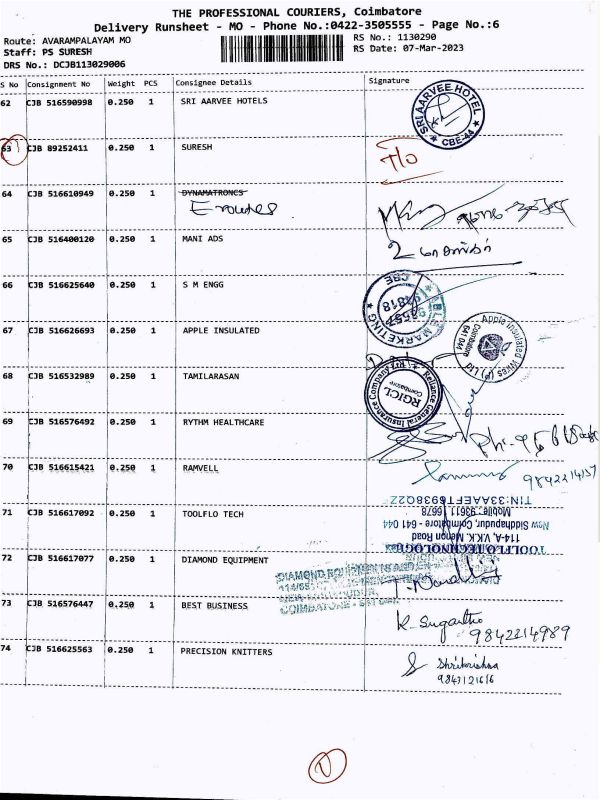 THE PROFESSIONAL COURIERS, Coimbatore
Delivery Runsheet - MO - Phone No.:0422-3505555 - Page No.:6
Route: AVARAMPALAYAM MO
RS No.: 1130290
Staff: PS SURESH
RS Date: 07-Mar-2023
DRS No.: DCJB113029006
S No Consignment No Weight PCS Consignee Details Signature
62 CJB 516590998 0.250 1 SRI AARVEE HOTELS
SRI AARVEE HOTEL
CBE-44
63 CJB 89252411 0.250 1 SURESH
64 CJB 516610949 0.250 1 DYNAMATRONCS
E routes
65 CJB 516400120 0.250 1 MANI ADS
66 CJB 516625640 0.250 1 S M ENGG
ABLE MARKETING
CBE
67 CJB 516626693 0.250 1 APPLE INSULATED
Apple Insulated Wires (P) Ltd
Coimbatore
641 044
68 CJB 516532989 0.250 1 TAMILARASAN
Reliance General Insurance Company Ltd
RGICL
Coimbatore
69 CJB 516576492 0.250 1 RYTHM HEALTHCARE
70 CJB 516615421 0.250 1 RAMVELL
9842214157
71 CJB 516617092 0.250 1 TOOLFLO TECH
TOOLFLO TECHNOLOGIES
114-A, V.K.K. Menon Road
New Siddhapudur, Coimbatore - 641 044
Mobile: 93611 6678
TIN:33AAEFT6938Q2Z
72 CJB 516617077 0.250 1 DIAMOND EQUIPMENT
DIAMOND EQUIPMENTS AND EN
114/65
COIMBATORE - 641 044
73 CJB 516576447 0.250 1 BEST BUSINESS
K. Sugantha
9842214989
74 CJB 516625563 0.250 1 PRECISION KNITTERS
Shrikrishna
9843121616